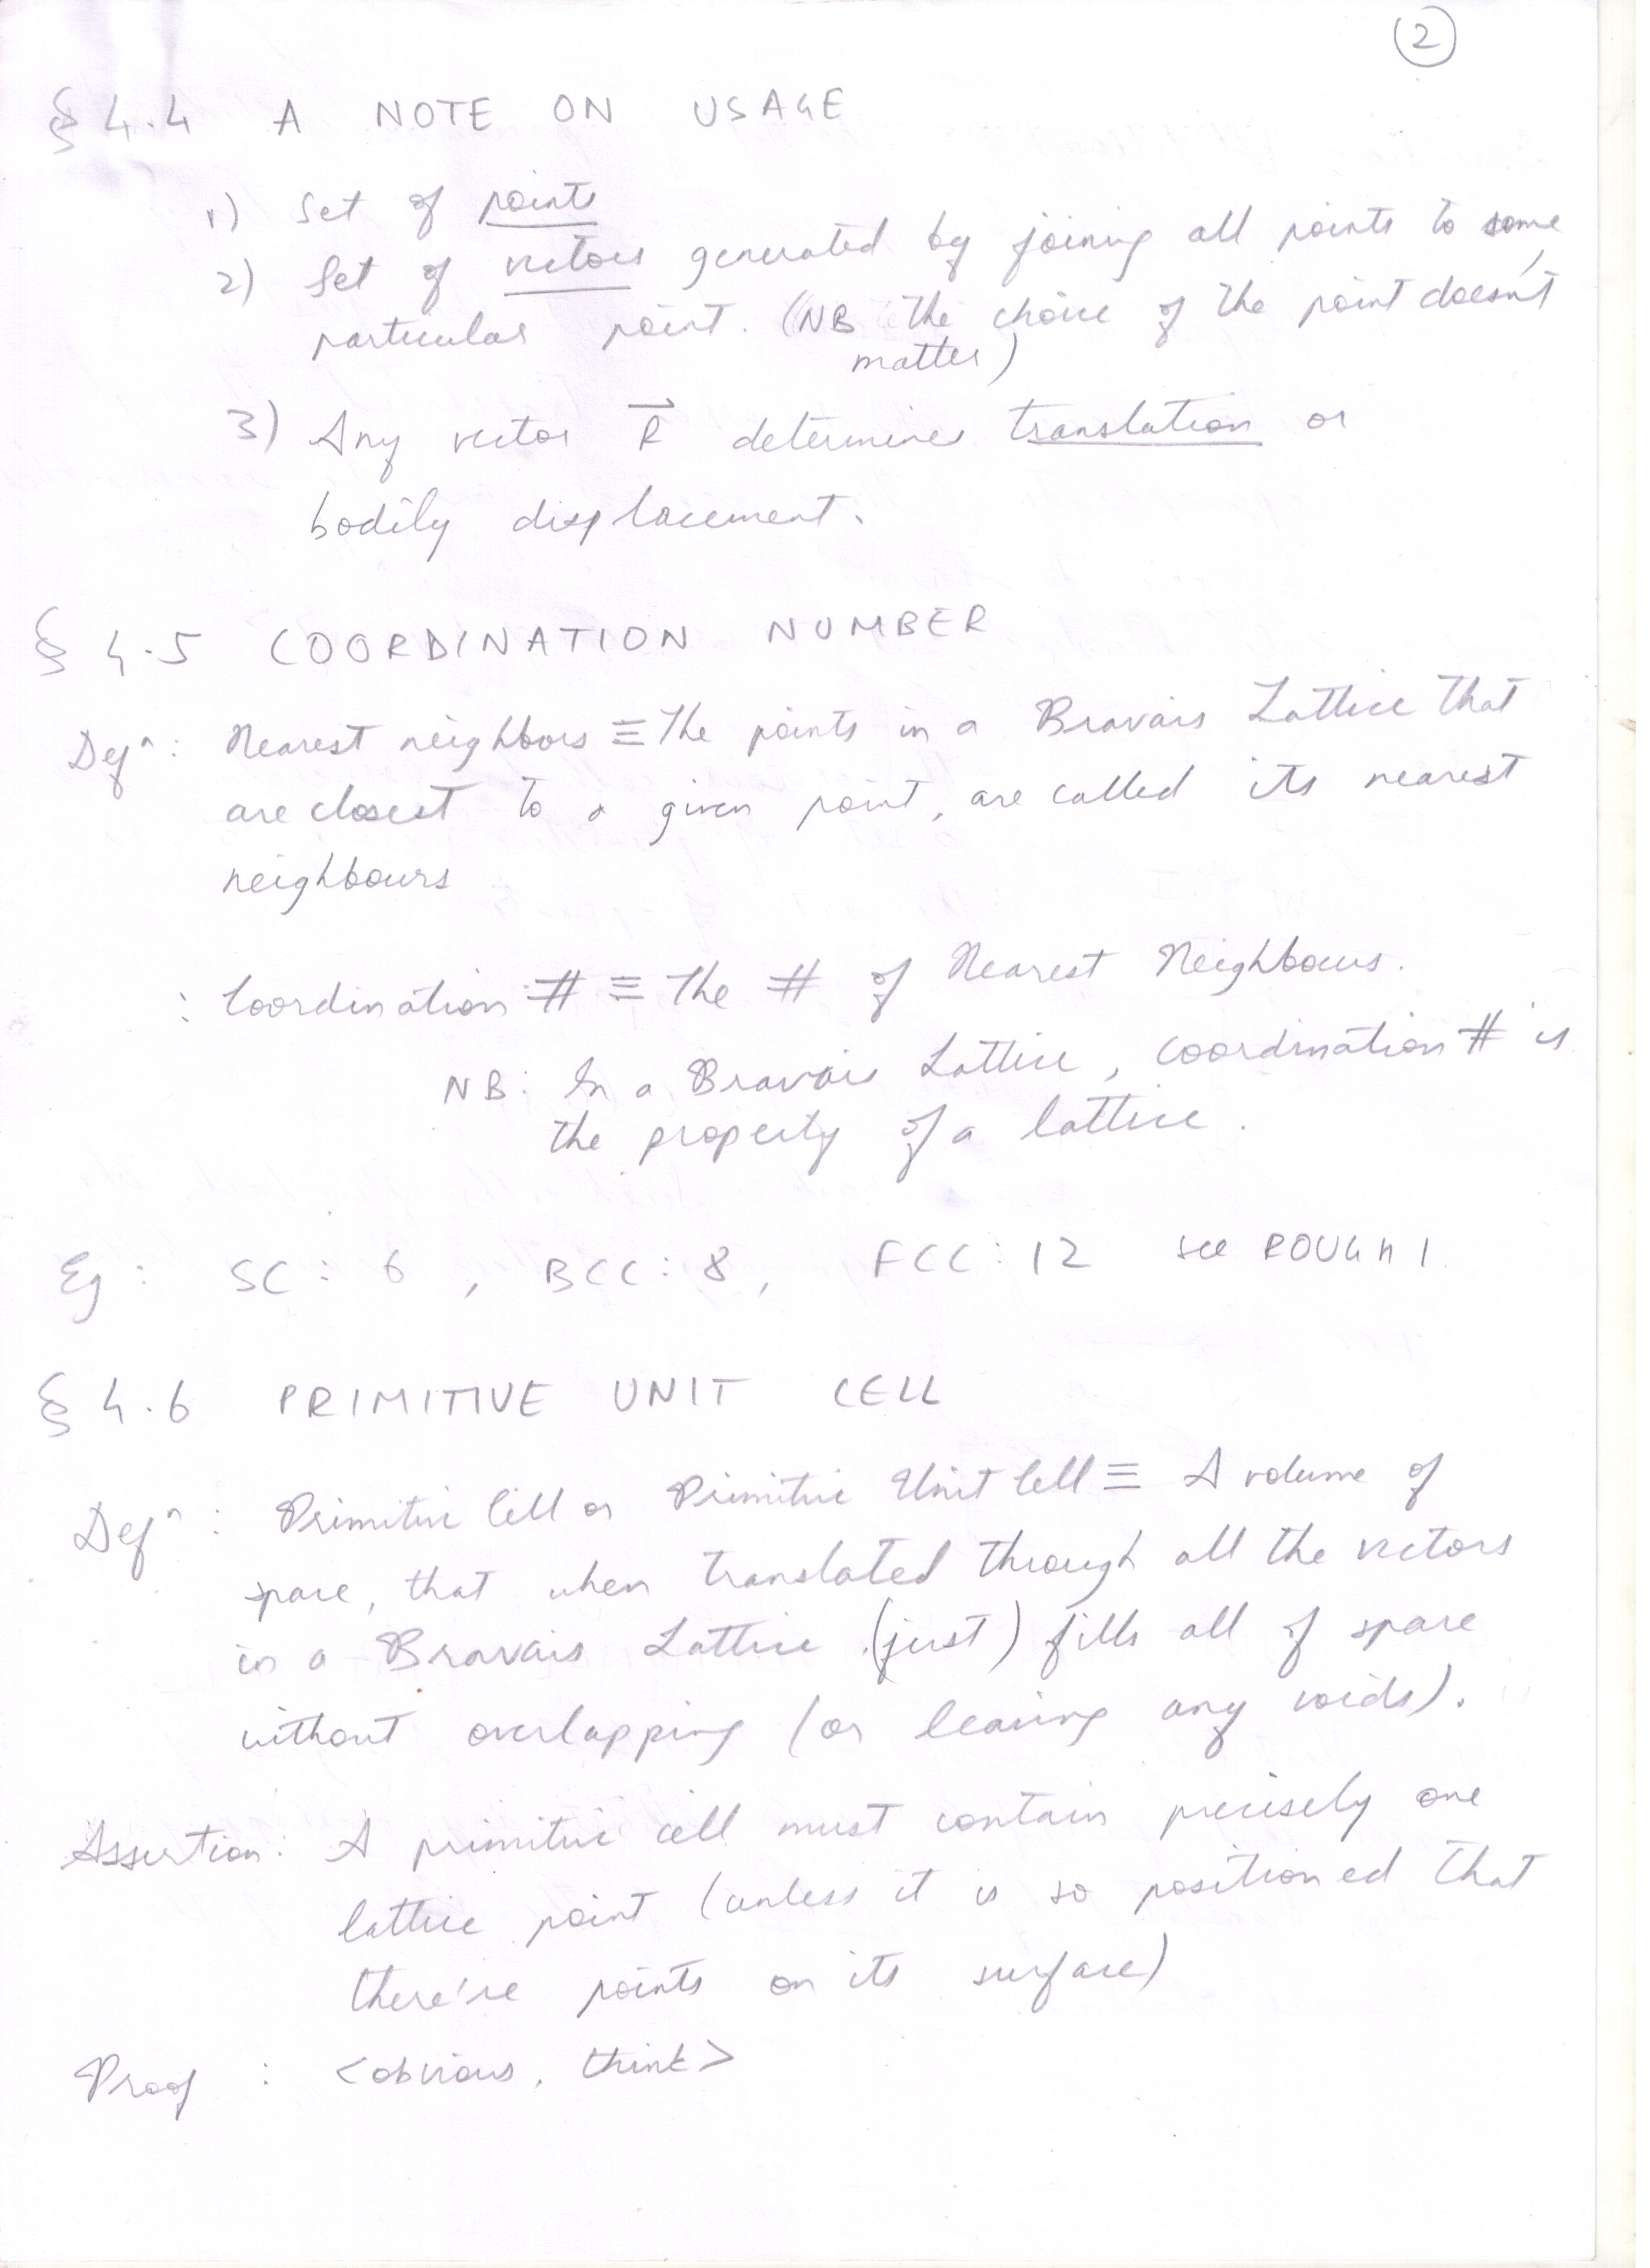 2
§ 4.4 A NOTE ON USAGE
1) Set of points
2) Set of vectors generated by joining all points to some
particular point. (NB the choice of the point doesn't
matter)
3) Any vector R⃗ determines translation or
bodily displacement.
§ 4.5 COORDINATION NUMBER
Defⁿ: Nearest neighbors ≡ The points in a Bravais Lattice that
are closest to a given point, are called its nearest
neighbours
: Coordination # ≡ The # of Nearest Neighbours.
NB: In a Bravais Lattice, coordination # is
the property of a lattice.
Eg: SC: 6, BCC: 8, FCC: 12 see ROUGH 1
§ 4.6 PRIMITIVE UNIT CELL
Defⁿ: Primitive Cell or Primitive Unit Cell ≡ A volume of
space, that when translated through all the vectors
in a Bravais Lattice (just) fills all of space
without overlapping (or leaving any voids).
Assertion: A primitive cell must contain precisely one
lattice point (unless it is so positioned that
there're points on its surface)
Proof : <obvious, think>